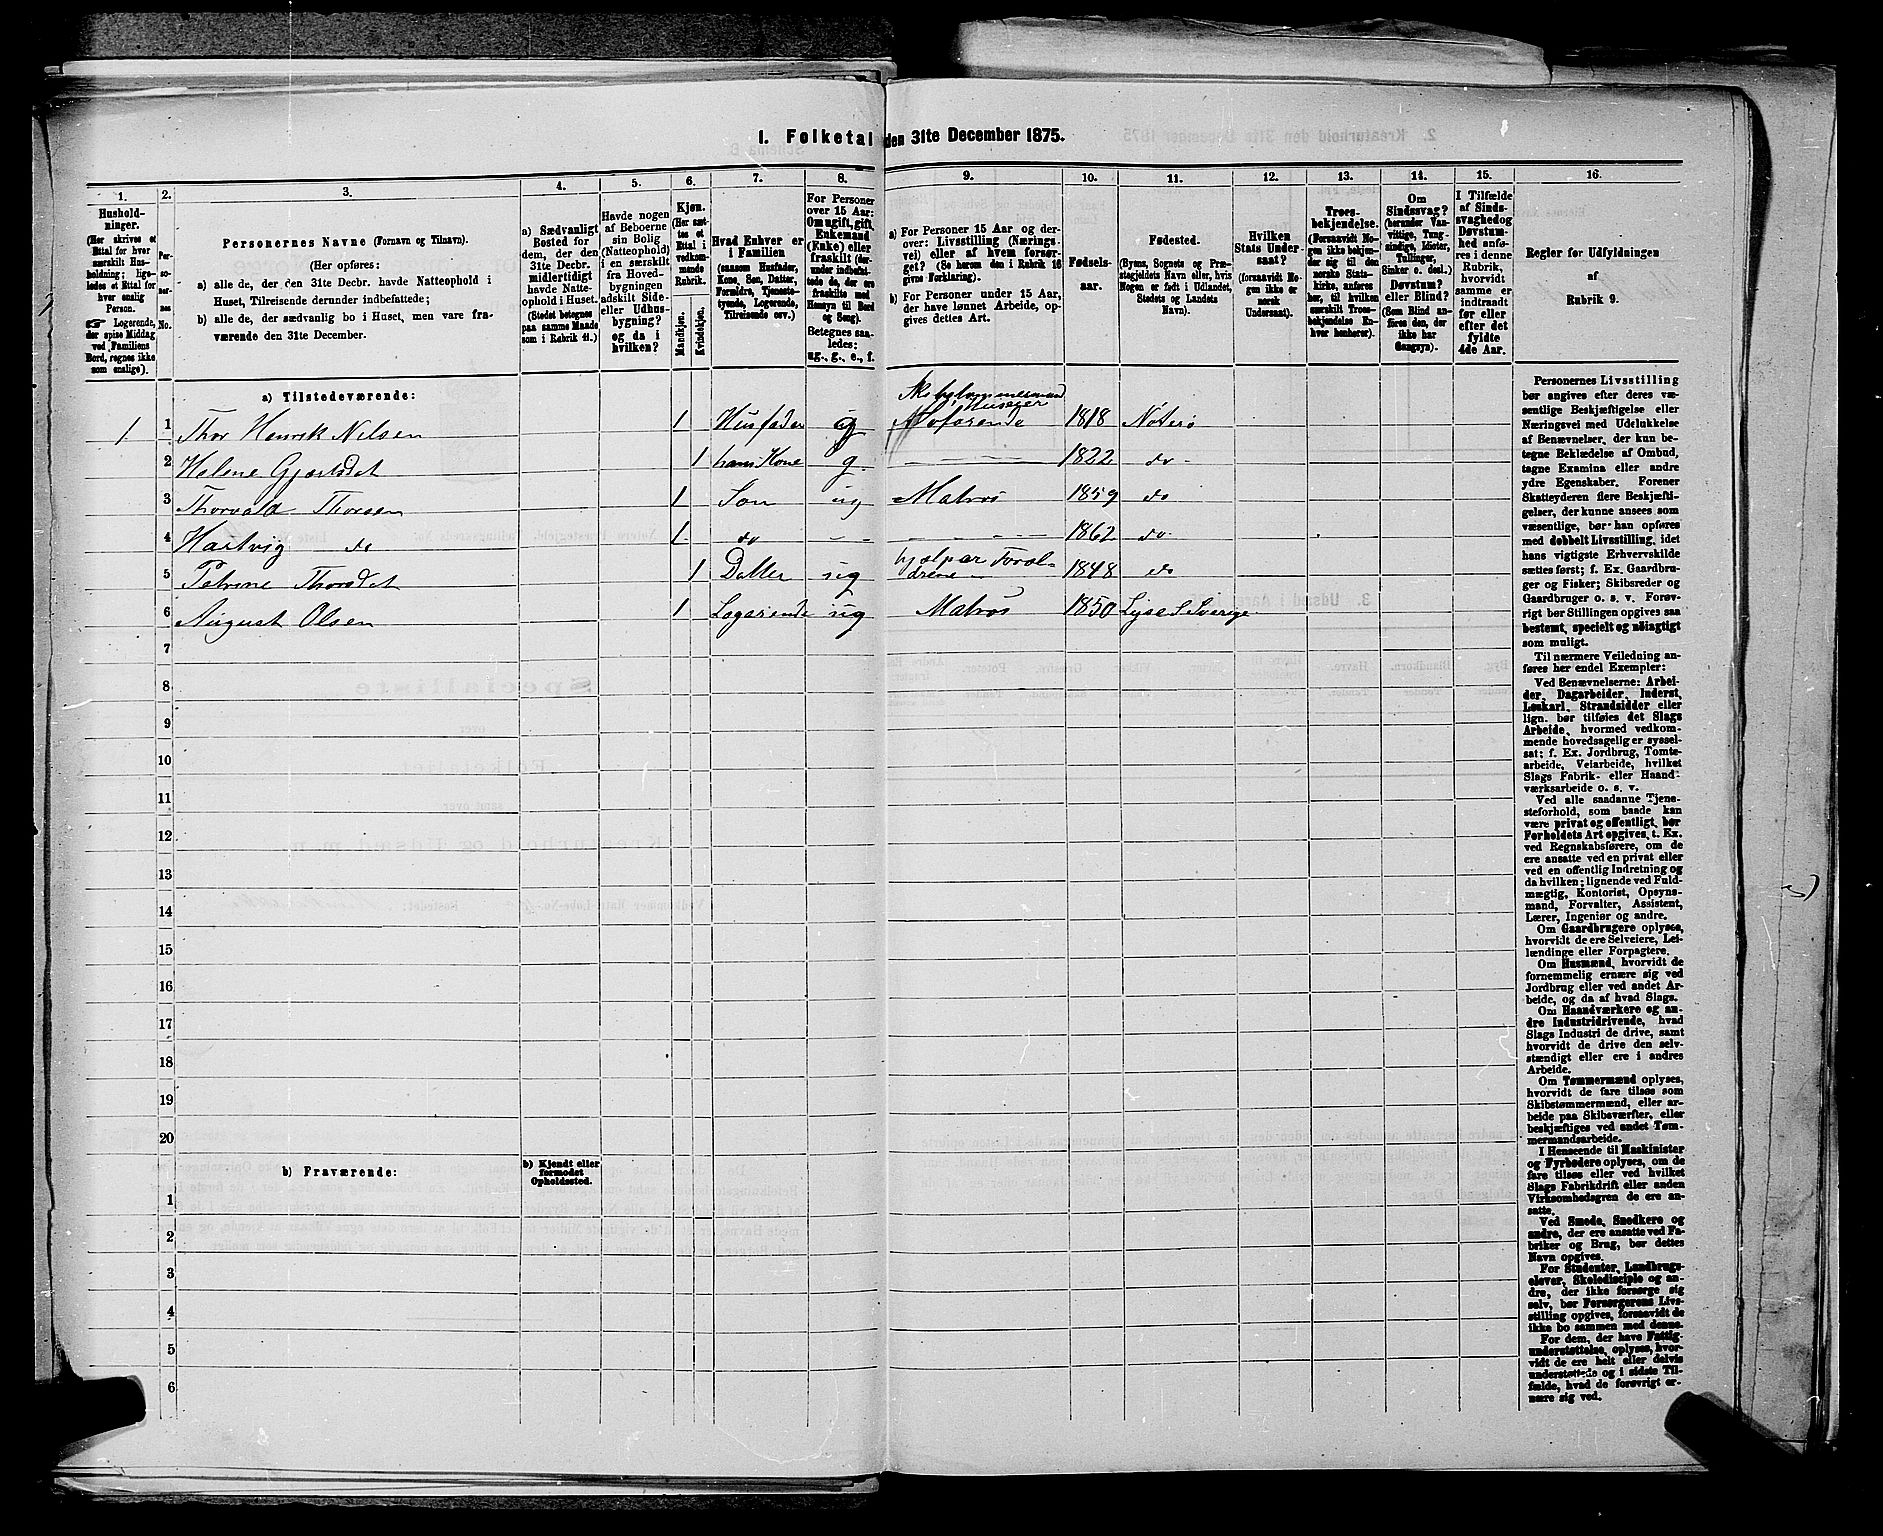 1. Folketal den 31te December 1875.
1. 2. 3. 4. 5. 6. 7. 8. 9. 10. 11. 12. 13. 14. 15. 16.
Hushold-
ninger.
(Her skrives et
Ettal for hver
særskilt Hus-
holdning; lige-
ledes et Ettal for
hver enslig
Person.
☞ Logerende,
der spise Middag
ved Familiens
Bord, regnes ikke
som enslige).
Per-
so-
ner-
nes
No.
Personernes Navne (Fornavn og Tilnavn).
(Her opføres:
a) alle de, der den 31te Decbr. havde Natteophold i
Huset, Tilreisende derunder indbefattede;
b) alle de, der sædvanlig bo i Huset, men vare fra-
værende den 31te December.
a) Sædvanligt
Bosted for
dem, der den
31te Decbr.
midlertidigt
havde Natte-
ophold i Huset.
(Stedet betegnes
paa samme Maade
som i Rubrik 11.)
Havde nogen
af Beboerne
sin Bolig
(Natteophold)
i en særskilt
fra Hoved-
bygningen
adskilt Side-
eller Udhus-
bygning?
og da i
hvilken?
Kjøn.
(Her sæt-
tes et
Ettal i
vedkom-
mende
Rubrik.
Mandkjøn.
Kvindekjøn.
Hvad Enhver er
i Familien
(saasom Husfader,
Kone, Søn, Datter,
Forældre, Tjeneste-
tyende, Logerende,
Tilreisende osv.)
For Personer
over 15 Aar:
Om ugift, gift,
Enkemand
(Enke) eller
fraskilt (der-
under indbefat-
tede de, der ere
fraskilte med
Hensyn til Bord
og Seng).
Betegnes saa-
ledes:
ug., g., e., f.
a) For Personer 15 Aar og der-
over: Livsstilling (Nærings-
vei) eller af hvem forsør-
get? (Se herom den i Rubrik 16
givne Forklaring).
b) For Personer under 15 Aar,
der have lønnet Arbeide, op-
gives dettes Art.
Fødsels-
aar.
Fødested.
(Byens, Sognets og Præ-
stegjeldets Navn eller, hvis
Nogen er født i Udlandet,
Stedets og Landets
Navn).
Hvilken
Stats Under-
saat?
(forsaavidt No-
gen ikke er
norsk
Undersaat).
Troes-
bekjendelse.
(Forsaavidt No-
gen ikke bekjen-
der sig til den
norske Stats-
kirke, anføres
her, til hvilken
særskilt Troes-
bekjendelse En-
hver henhører).
Om
Sindssvag?
(herunder Van-
vittige, Tung-
sindige, Idioter,
Tullinger,
Sinker o. desl.)
Døvstum?
eller Blind?
(Som Blind an-
føres den, der
ikke har
Gangsyn).
I Tilfælde
af Sinds-
svaghed og
Døvstum-
hed anfø-
res i denne
Rubrik,
hvorvidt
samme er
indtraadt
før eller
efter det
fyldte
4de Aar.
Regler for Udfyldningen
af
Rubrik 9.
a) Tilstedeværende:
1 1 Thor Henrik Nilsen 1 Husfader ug 1818 Nøterø
2 Helene Gjertsdat 1 hans Kone g 1822 do
3 Thorvald Thorsen 1 Søn ug Matros 1859 do
4 Hartvig do 1 do 1862 do
5 Petrine Thorsdat 1 Datter ug hjelper Foræl-
drene 1848 do
6 August Olsen 1 Logerende ug Matros 1850 Lyse S Sverige
7
8
9
10
11
12
13
14
15
16
17
18
19
20
b) Fraværende:
b) Kjendt eller
formodet
Opholdssted.
1
2
3
4
5
6
Personernes Livsstilling
bør angives efter deres væ-
sentlige Beskjæftigelse eller
Næringsvei med Udelukkelse
af Benævnelser, der kun be-
tegne Beklædelse af Ombud,
tagne Examina eller andre
ydre Egenskaber. Forener
Skatteyderen flere Beskjæfti-
gelser, der kunne ansees som
væsentlige, bør han opføres
med dobbelt Livsstilling, idet
hans vigtigste Erhvervskilde
sættes først; f. Ex. Gaardbru-
ger og Fisker; Skibsreder og
Gaardbruger o. s. v. Forøv-
rigt bør Stillingen opgives saa
bestemt, specielt og nøiagtigt
som muligt.
Til nærmere Veiledning an-
føres her endel Exempler:
Ved Benævnelserne: Arbei-
der, Dagarbeider, Inderst,
Løskarl, Strandsidder eller
lign. bør tilføies det Slags
Arbeide, hvormed vedkom-
mende hovedsagelig er syssel-
sat; f. Ex. Jordbrug, Tomte-
arbeide, Veiarbeide, hvilket
Slags Fabrik- eller Haand-
værksarbeide o. s. v.
Ved alle saadanne Tjene-
steforhold, som baade kan
være privat og offentligt, bør
Forholdets Art opgives, t. Ex.
ved Regnskabsførere, om de
ere ansatte ved en privat eller
ved en offentlig Indretning og
da hvilken; lignende ved Fuld-
mægtig, Kontorist, Opsyns-
mand, Forvalter, Assistent,
Lærer, Ingeniør og andre.
Om Gaardbrugere oplyses,
hvorvidt de ere Selveiere, Lei-
lændinge eller Forpagtere.
Om Husmænd, hvorvidt de
fornemmelig ernære sig ved
Jordbrug eller ved andet Ar-
beide, og da af hvad Slags.
Om Haandværkere og an-
dre Industridrivende, hvad
Slags Industri de drive, samt
hvorvidt de drive den selv-
stændigt eller ere i andres
Arbeide.
Om Tømmermænd oplyses,
hvorvidt de fare tilsøs som
Skibstømmermænd, eller ar-
beide paa Skibsværfter, eller
beskjæftiges ved andet Tøm-
mermandsarbeide.
I Henseende til Maskinister
og Fyrbødere oplyses, om de
fare tilsøs eller ved hvilket
Slags Fabrikdrift eller anden
Virksomhedsgren de ere an-
satte.
Ved Smede, Snedkere og
andre, der ere ansatte ved Fa-
briker og Brug, bør dettes
Navn opgives.
For Studenter, Landbrugs-
elever, Skoledisciple og an-
dre, der ikke forsørge sig
selv, bør Forsørgerens Livs-
stilling opgives, forsaavidt de
ikke bo sammen med denne.
For dem, der have Fattig-
understøttelse, oplyses, hvor-
vidt de ere helt eller delvis
understøttede og i sidste Til-
fælde, hvad de forøvrigt er-
nære sig ved.